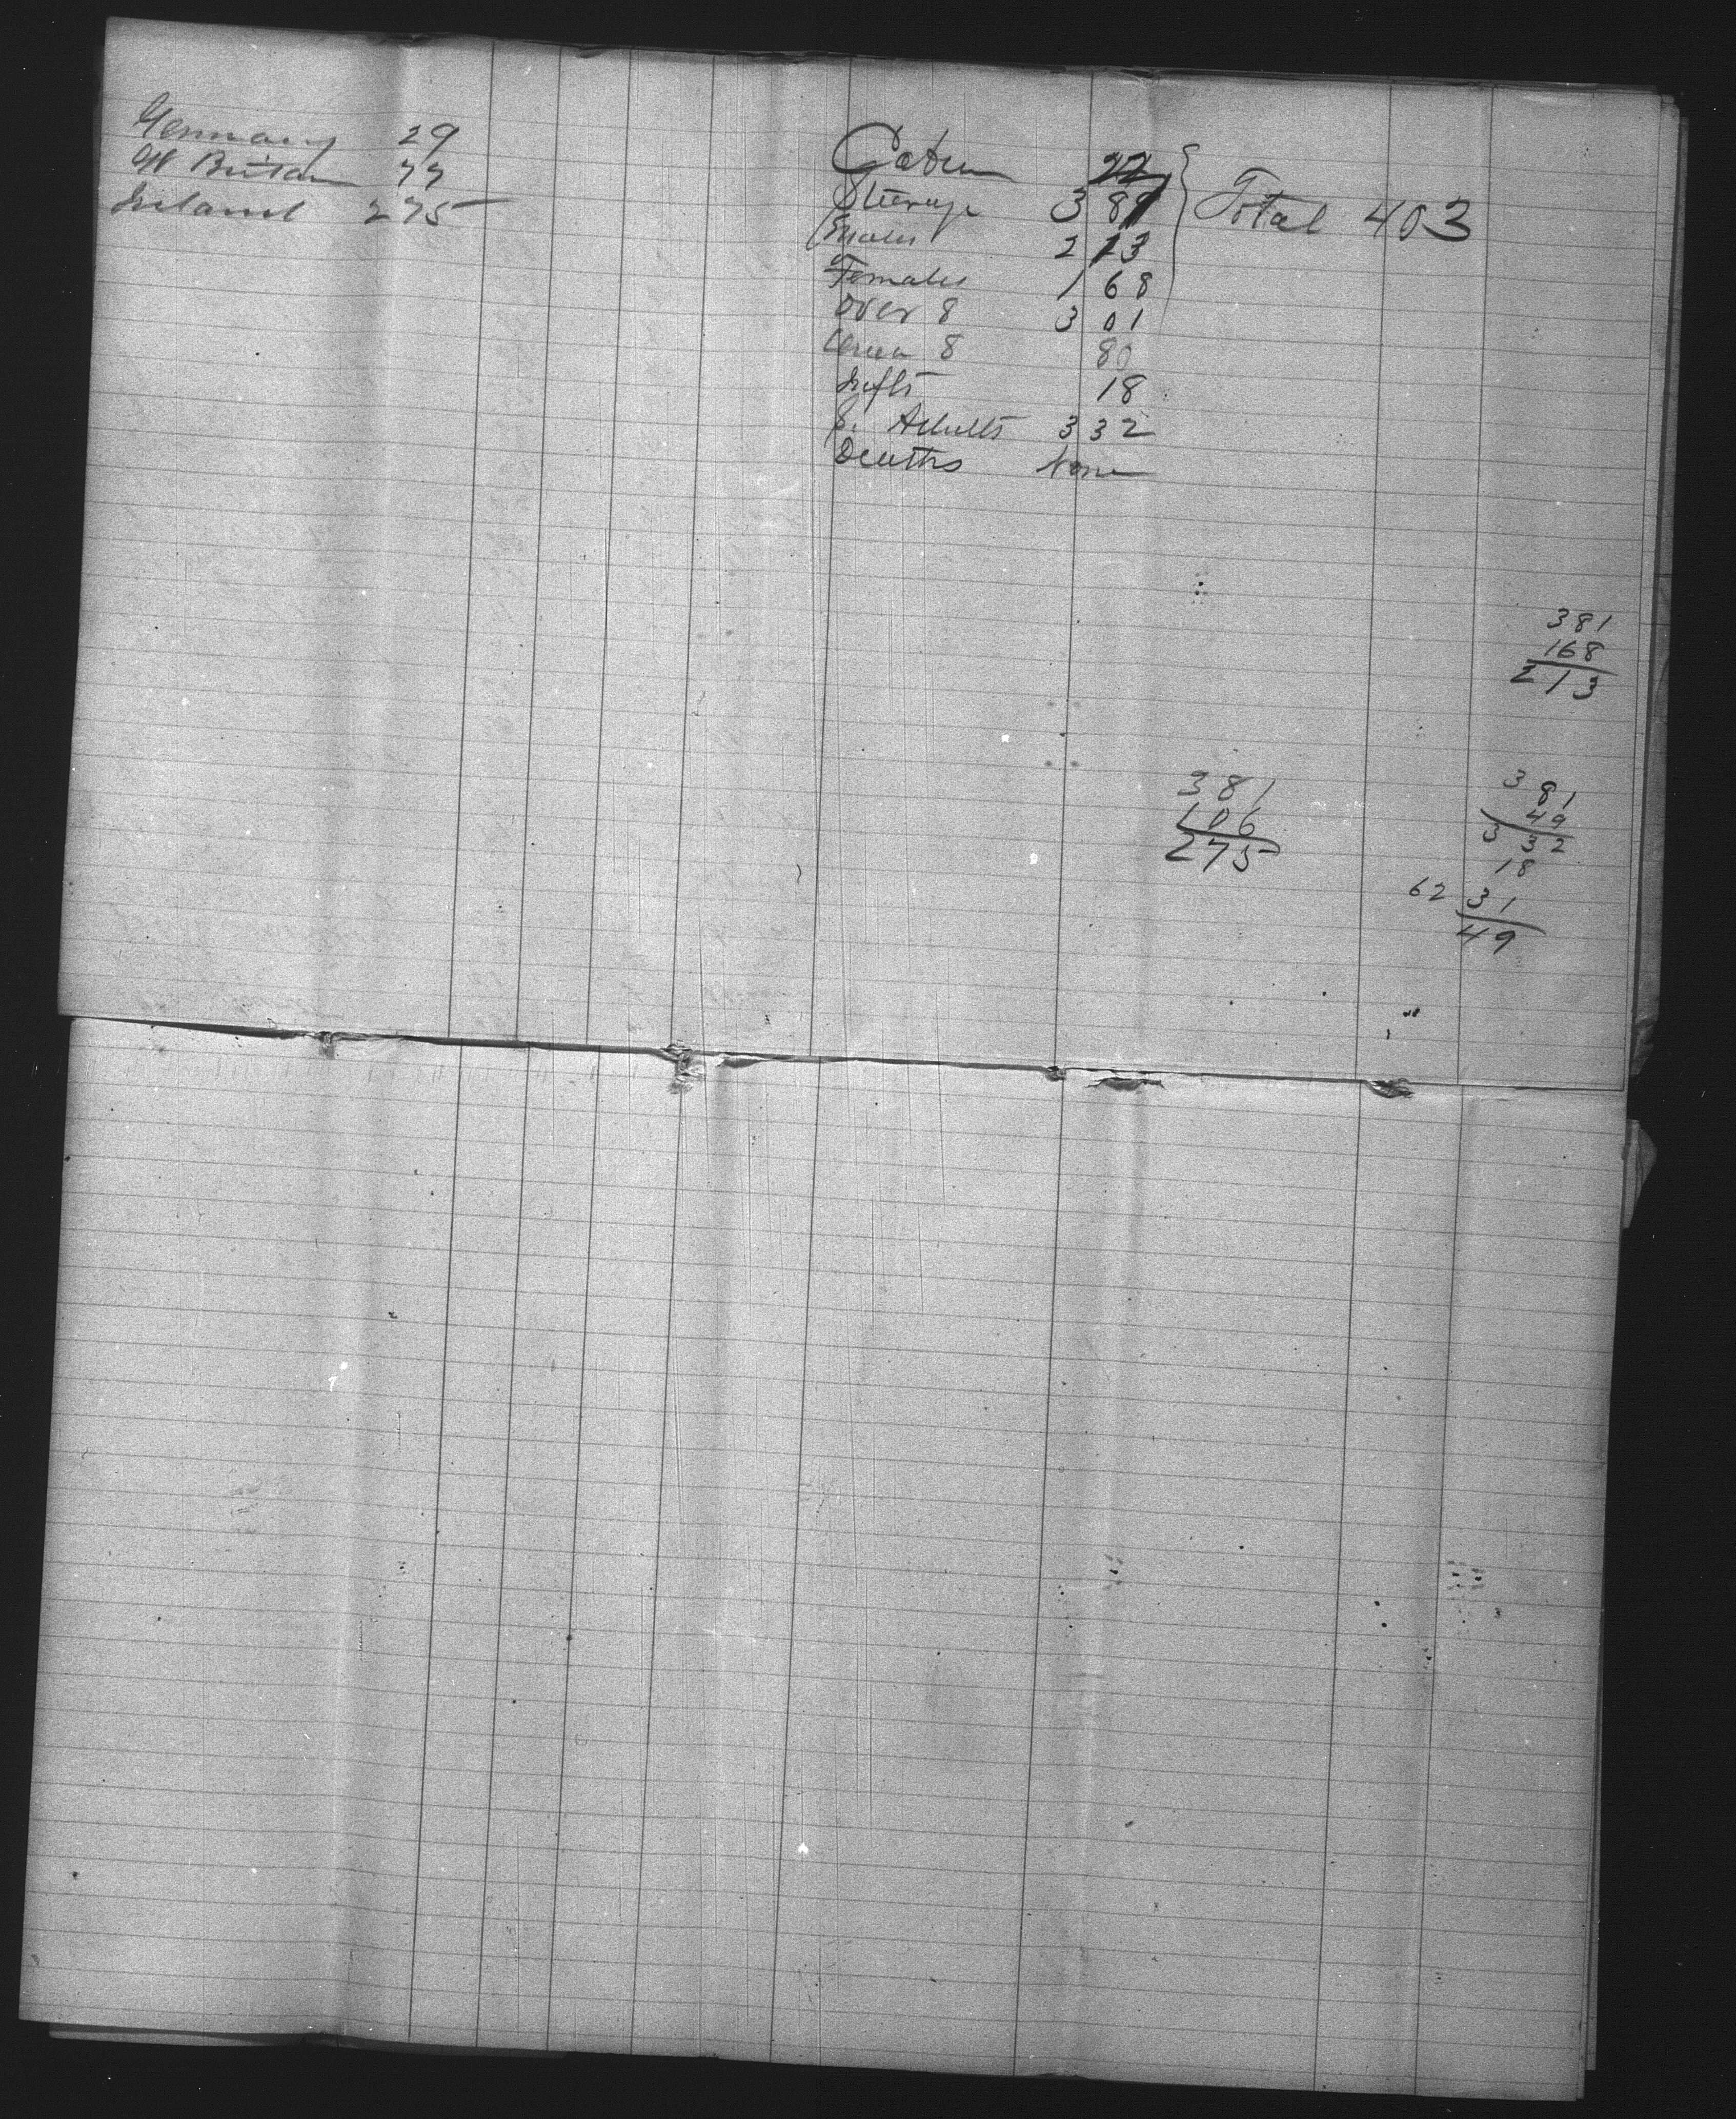 Germany 29
Gt Britain 77
Ireland 275
Cabin 22
Steerage 381
Total 403
Males 213
Females 168
Over 8 301
Under 8 80
Infts 18
S. Adults 332
Deaths None
381
168
213
381
106
275
381
49
332
18
62 31
49